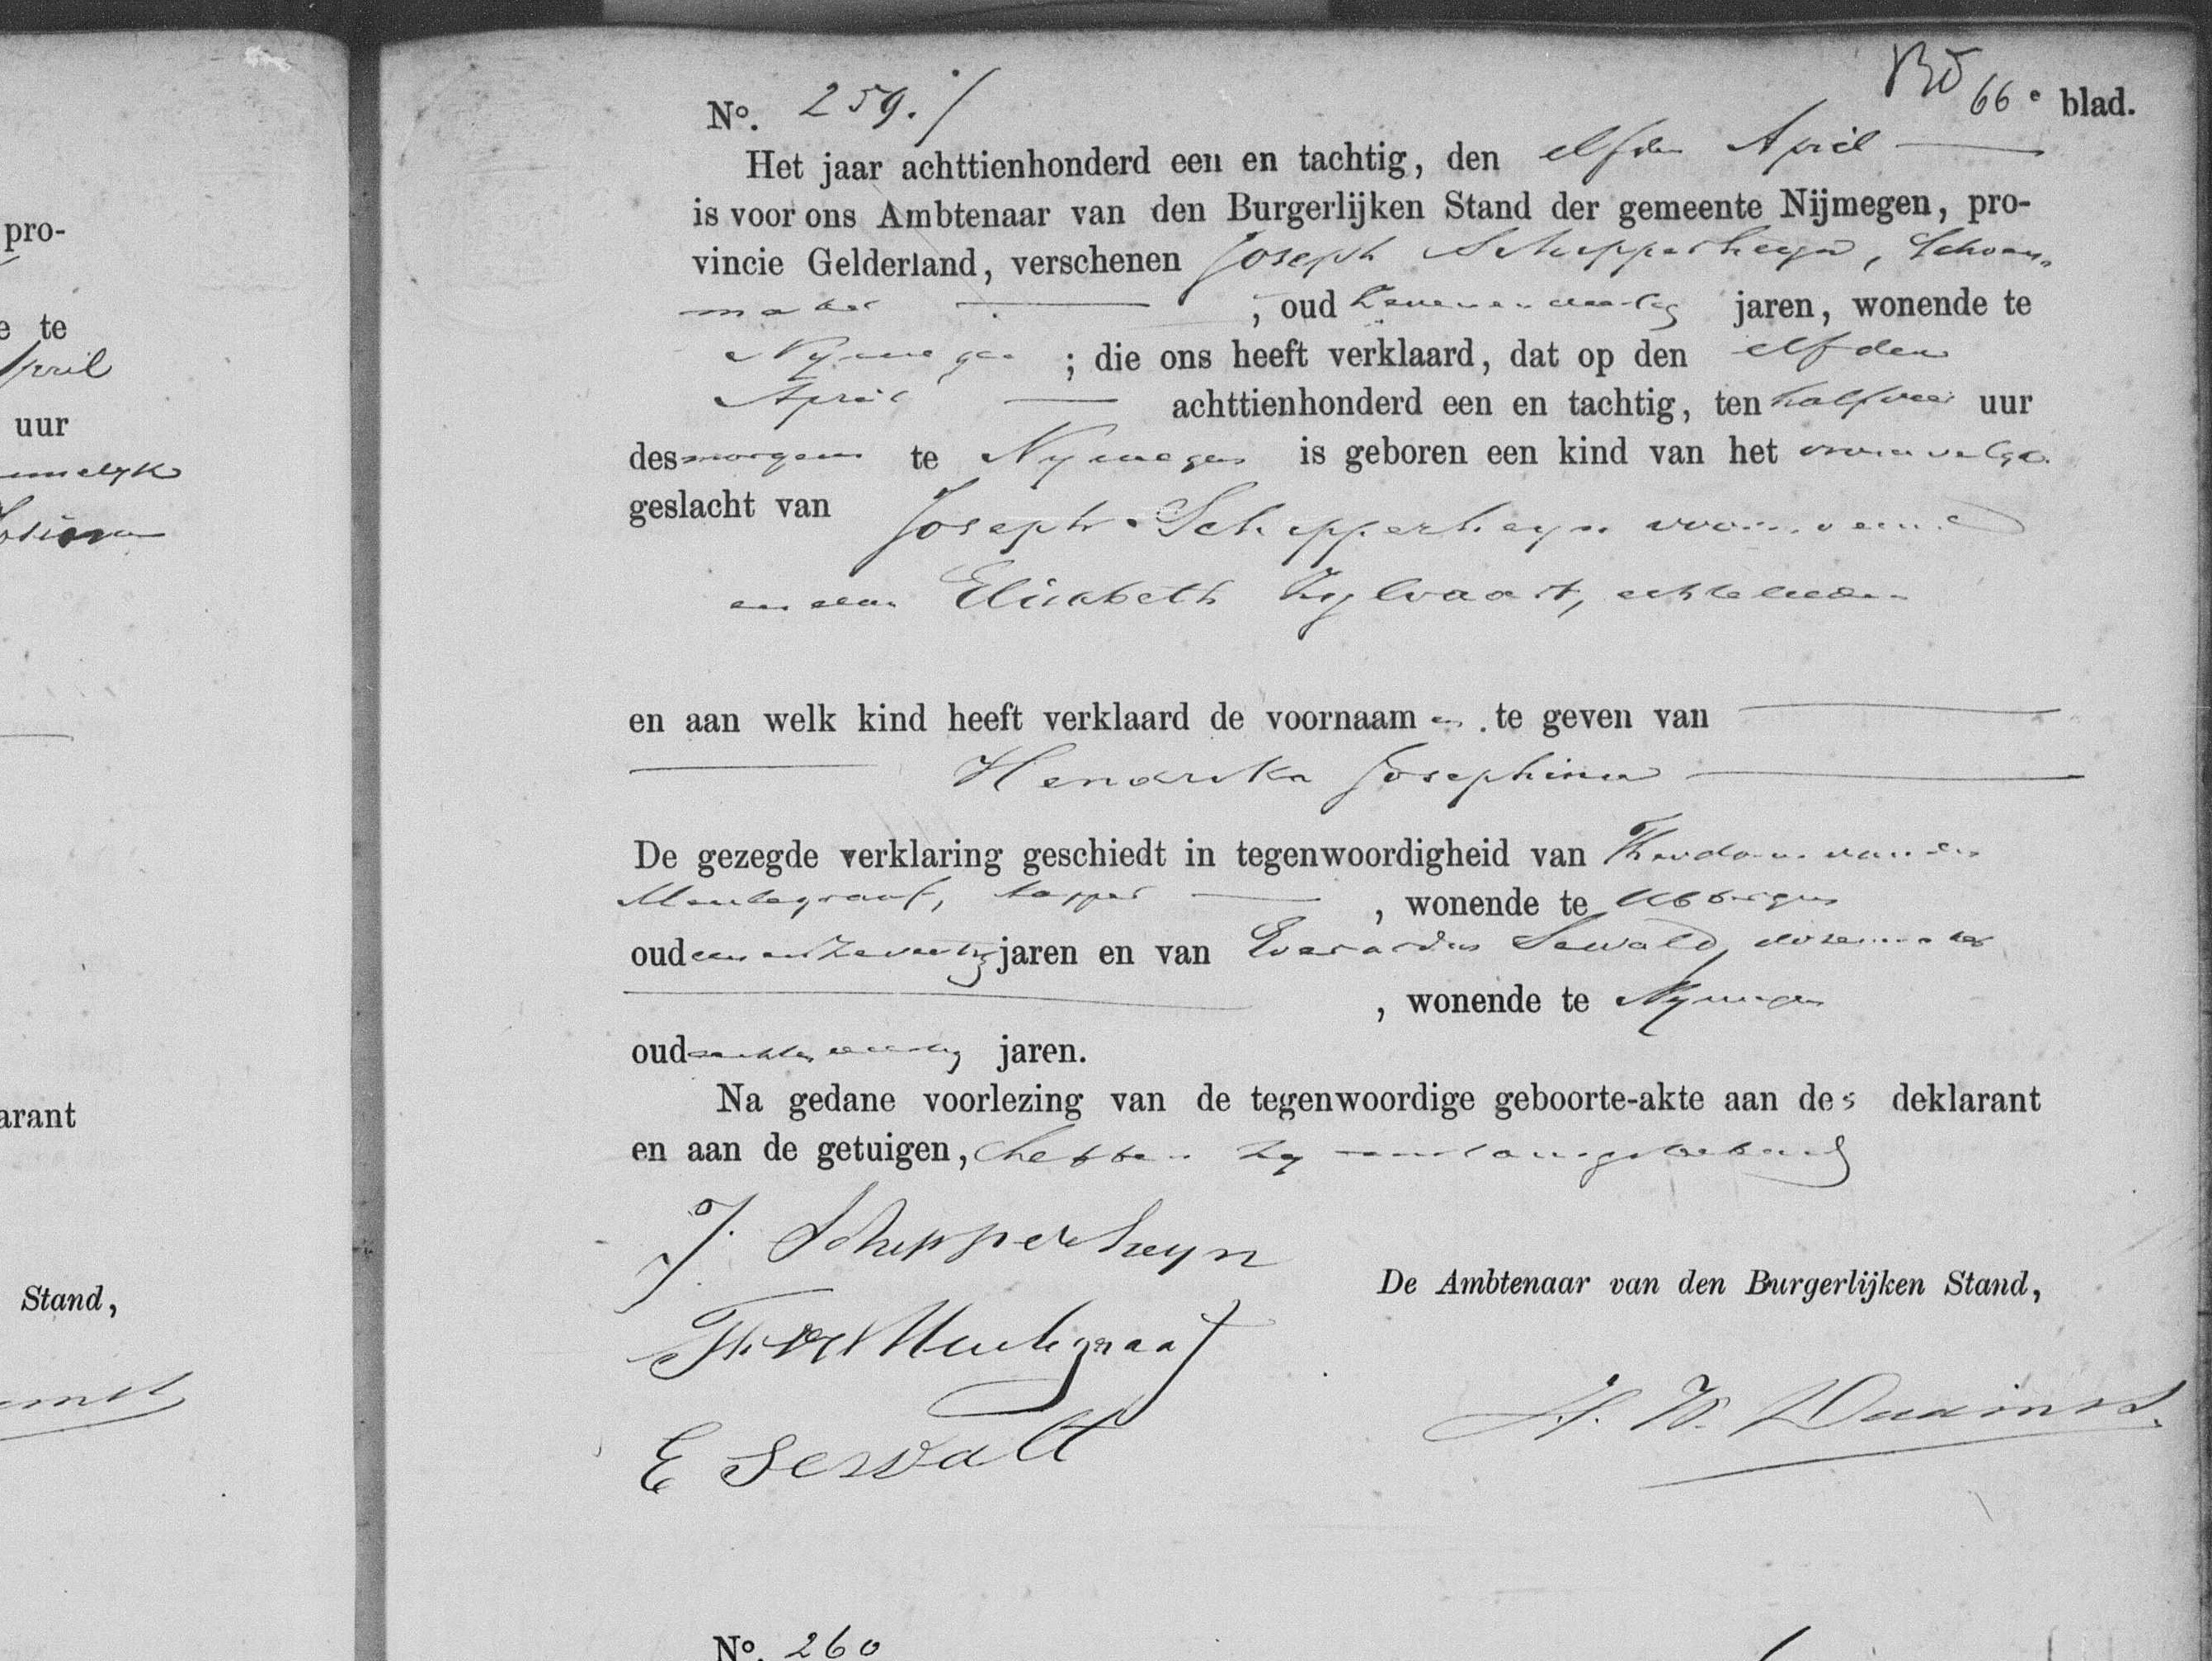 pro-
e te
April
uur
melyk
arant
Stand,
No. 259.
66e blad.
Het jaar achttienhonderd een en tachtig, den elfden April
is voor ons Ambtenaar van den Burgerlijken Stand der gemeente Nijmegen, pro-
vincie Gelderland, verschenen Joseph Schepperheyn, Schoen-
maker ; oud jaren, wonende te
Nymegen ; die ons heeft verklaard, dat op den elfden
April achttienhonderd een en tachtig, ten half uur
des morgens te Nymegen is geboren een kind van het vrouwelyke
geslacht van Joseph Schepperheyn voornoemd
en van Elisabeth Zylvaart, echtelieden
en aan welk kind heeft verklaard de voornaam en te geven van
Hendrika Josephina
De gezegde verklaring geschiedt in tegenwoordigheid van Theodorus van de
Meulegraaf, tapper , wonende te Ubbergen
oud een en zeventig jaren en van Everardus Sewald,
, wonende te Nymegen
oud jaren.
Na gedane voorlezing van de tegenwoordige geboorte-akte aan des deklarant
en aan de getuigen, hebben zy
J. Schepperheyn
Th. vd Meulegraaf
De Ambtenaar van den Burgerlijken Stand,
E Sewalt
No. 260